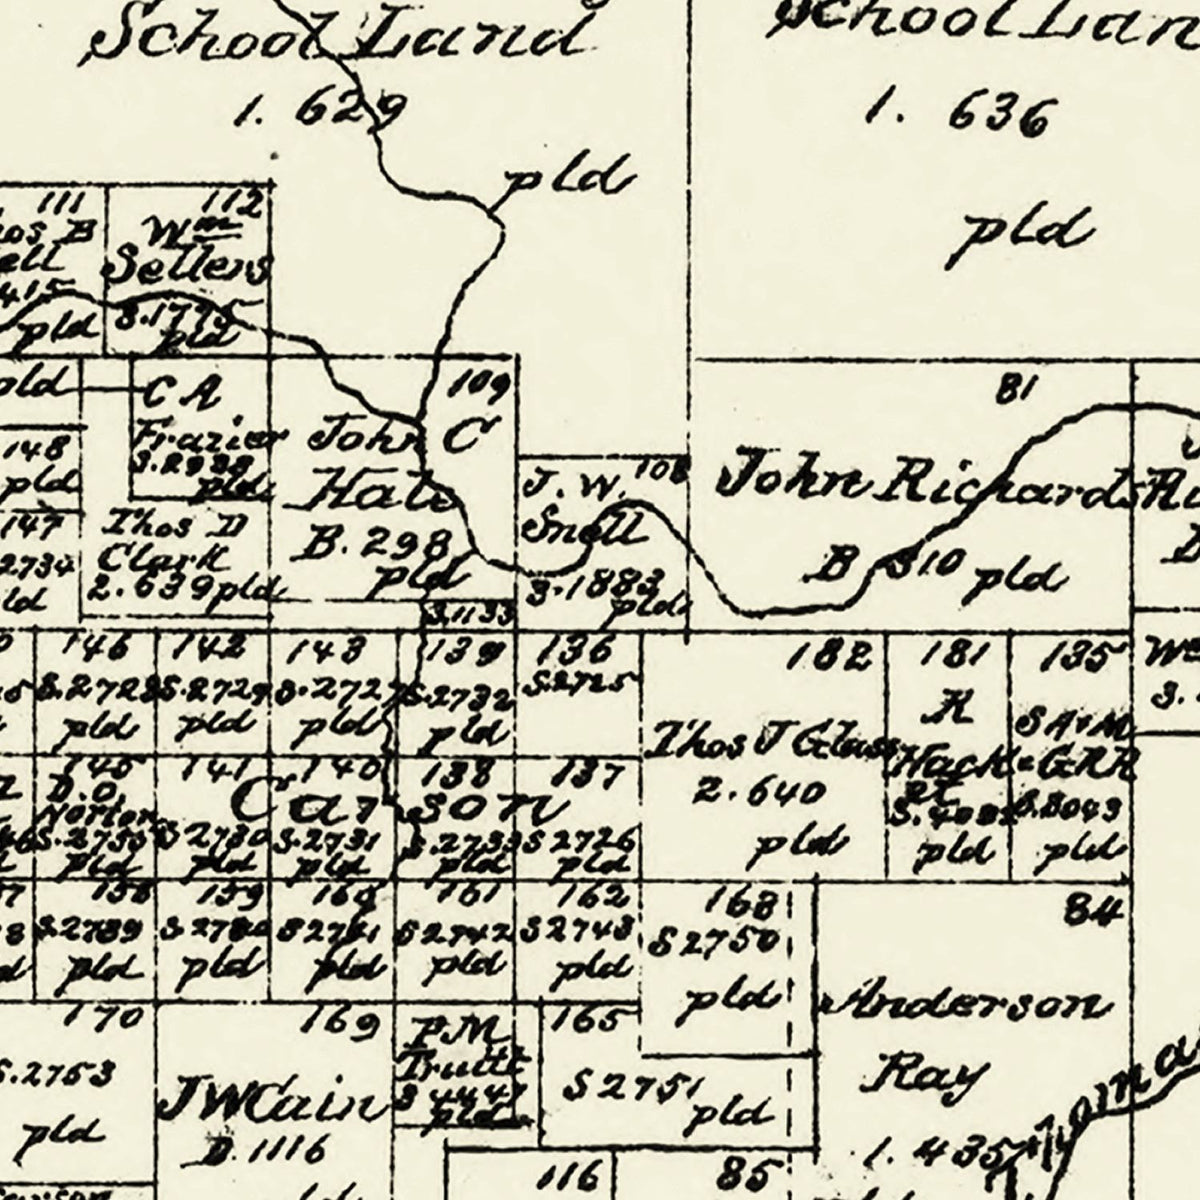 School Land
1. 629
pld
School Lan
1. 636
pld
111
os B
ell
415
pld
112
Wm
Sellers
S.1775
pld
pld
C A
Frazier
pld
148
pld
147
2734
ld
Thos D
Clark
2.639 pld
109
John C
Hale
B.298
pld
S.1133
J. W. 108
Snell
3.1883
pld
81
John Richards
B 310 pld
146
S.2728
pld
142
S.2729
pld
143
S.2727
pld
139
S.2732
pld
136
S.2725
182
Thos J Glass
2.640
pld
181
H
Hack
pld
135
S A & M
G R R
S.8043
pld
We
S.
145
D.O.
Norton
pld
141
S 2730
pld
140
S.2731
pld
138
S.2733
pld
137
S 2726
pld
Carson
158
S.2739
pld
159
pld
160
pld
161
S 2742
pld
162
S 2743
pld
168
S 2750
pld
84
Anderson
Ray
1. 435
170
S.2753
pld
169
J W Cain
D.1116
P.M
Truitt
S 4447
pld
165
S 2751
pld
116
85